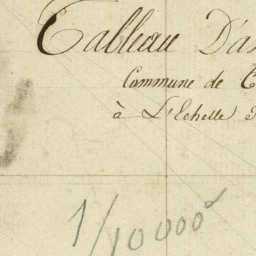 Tableau D'as
Commune de C
à L'Echelle
1/10000e